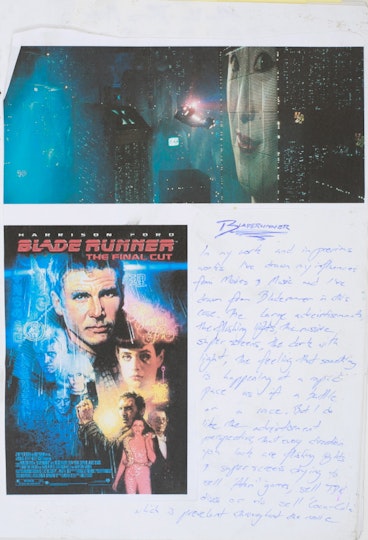 HARRISON FORD
BLADE RUNNER
THE FINAL CUT
BLADERUNNER
In my work and in previous
works I've drawn my influences
from Movies & Music and I've
drawn from Bladerunner in this
case. The large advertisements
the flashing lights, the massive
super screens, the dark with
lights, the feeling that something
is happening at a
pace as if a battle
or a race. But I do
like the advertisement
perspective that every direction
you look are flashing lights
& super screens trying to
sell games, sell
or sell Coca-Cola
which is prevalent throughout the movie